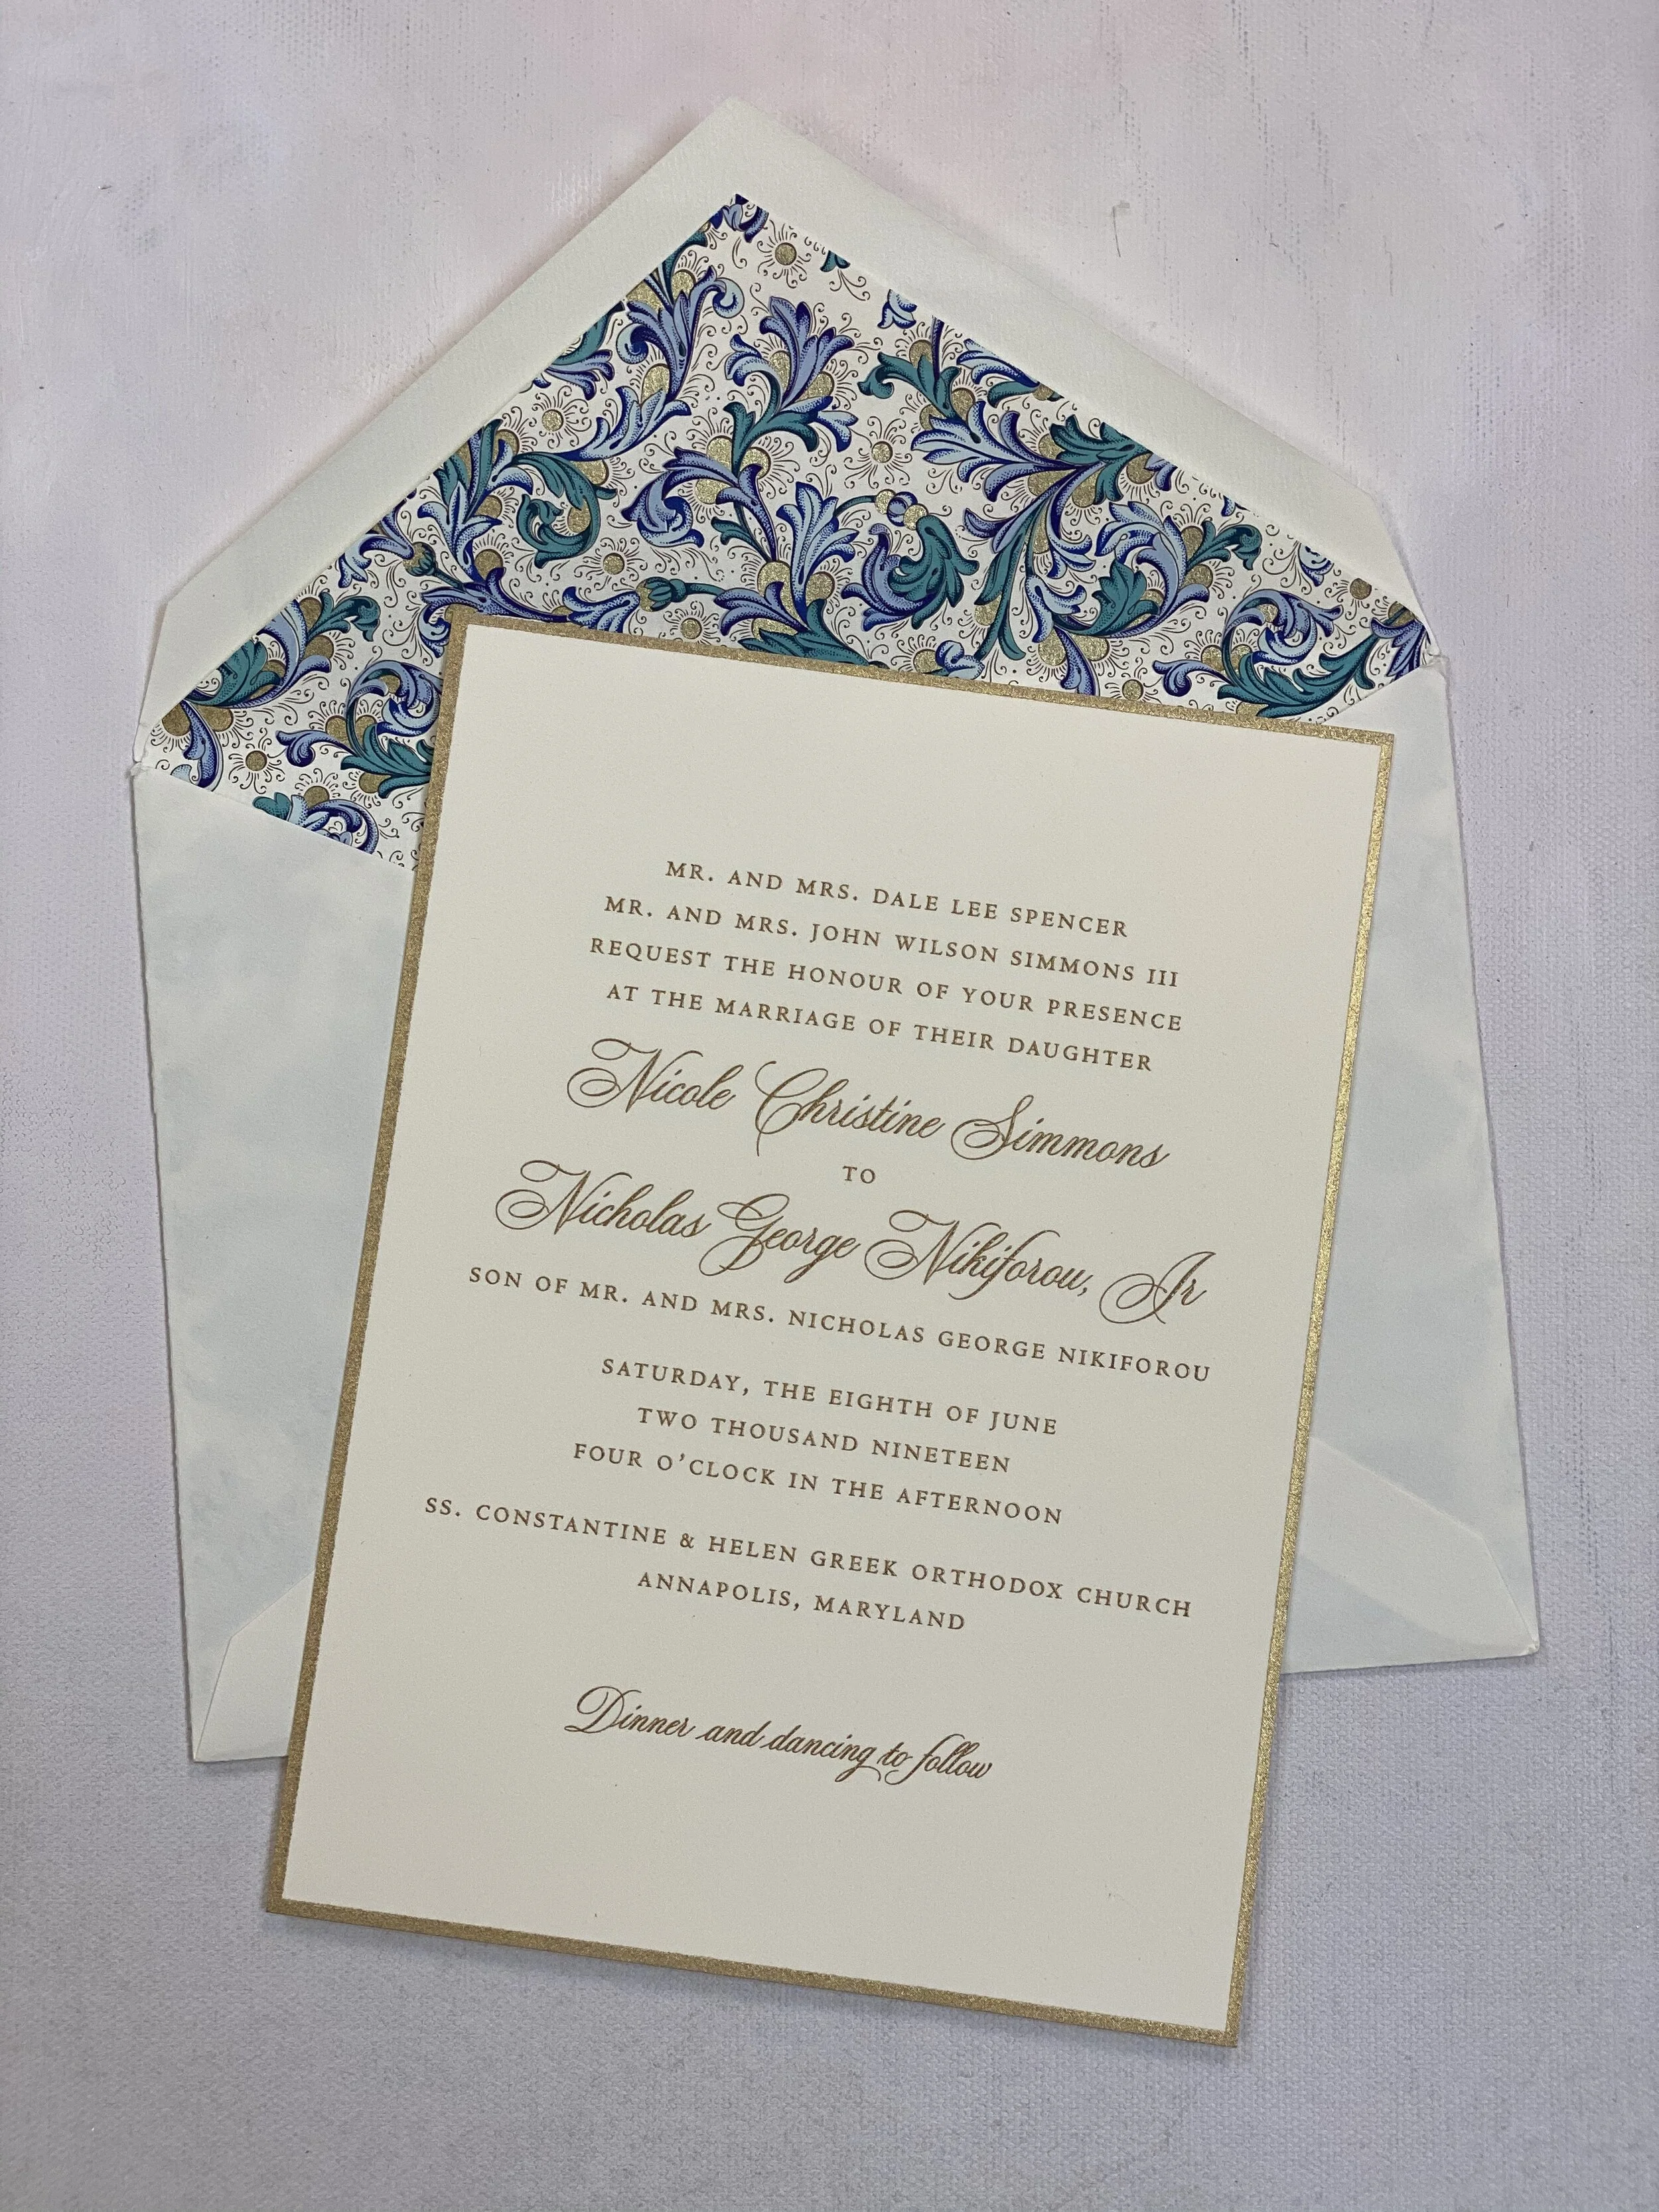 MR. AND MRS. DALE LEE SPENCER
MR. AND MRS. JOHN WILSON SIMMONS III
REQUEST THE HONOUR OF YOUR PRESENCE
AT THE MARRIAGE OF THEIR DAUGHTER
Nicole Christine Simmons
TO
Nicholas George Nikiforou, Jr
SON OF MR. AND MRS. NICHOLAS GEORGE NIKIFOROU
SATURDAY, THE EIGHTH OF JUNE
TWO THOUSAND NINETEEN
FOUR O'CLOCK IN THE AFTERNOON
SS. CONSTANTINE & HELEN GREEK ORTHODOX CHURCH
ANNAPOLIS, MARYLAND
Dinner and dancing to follow